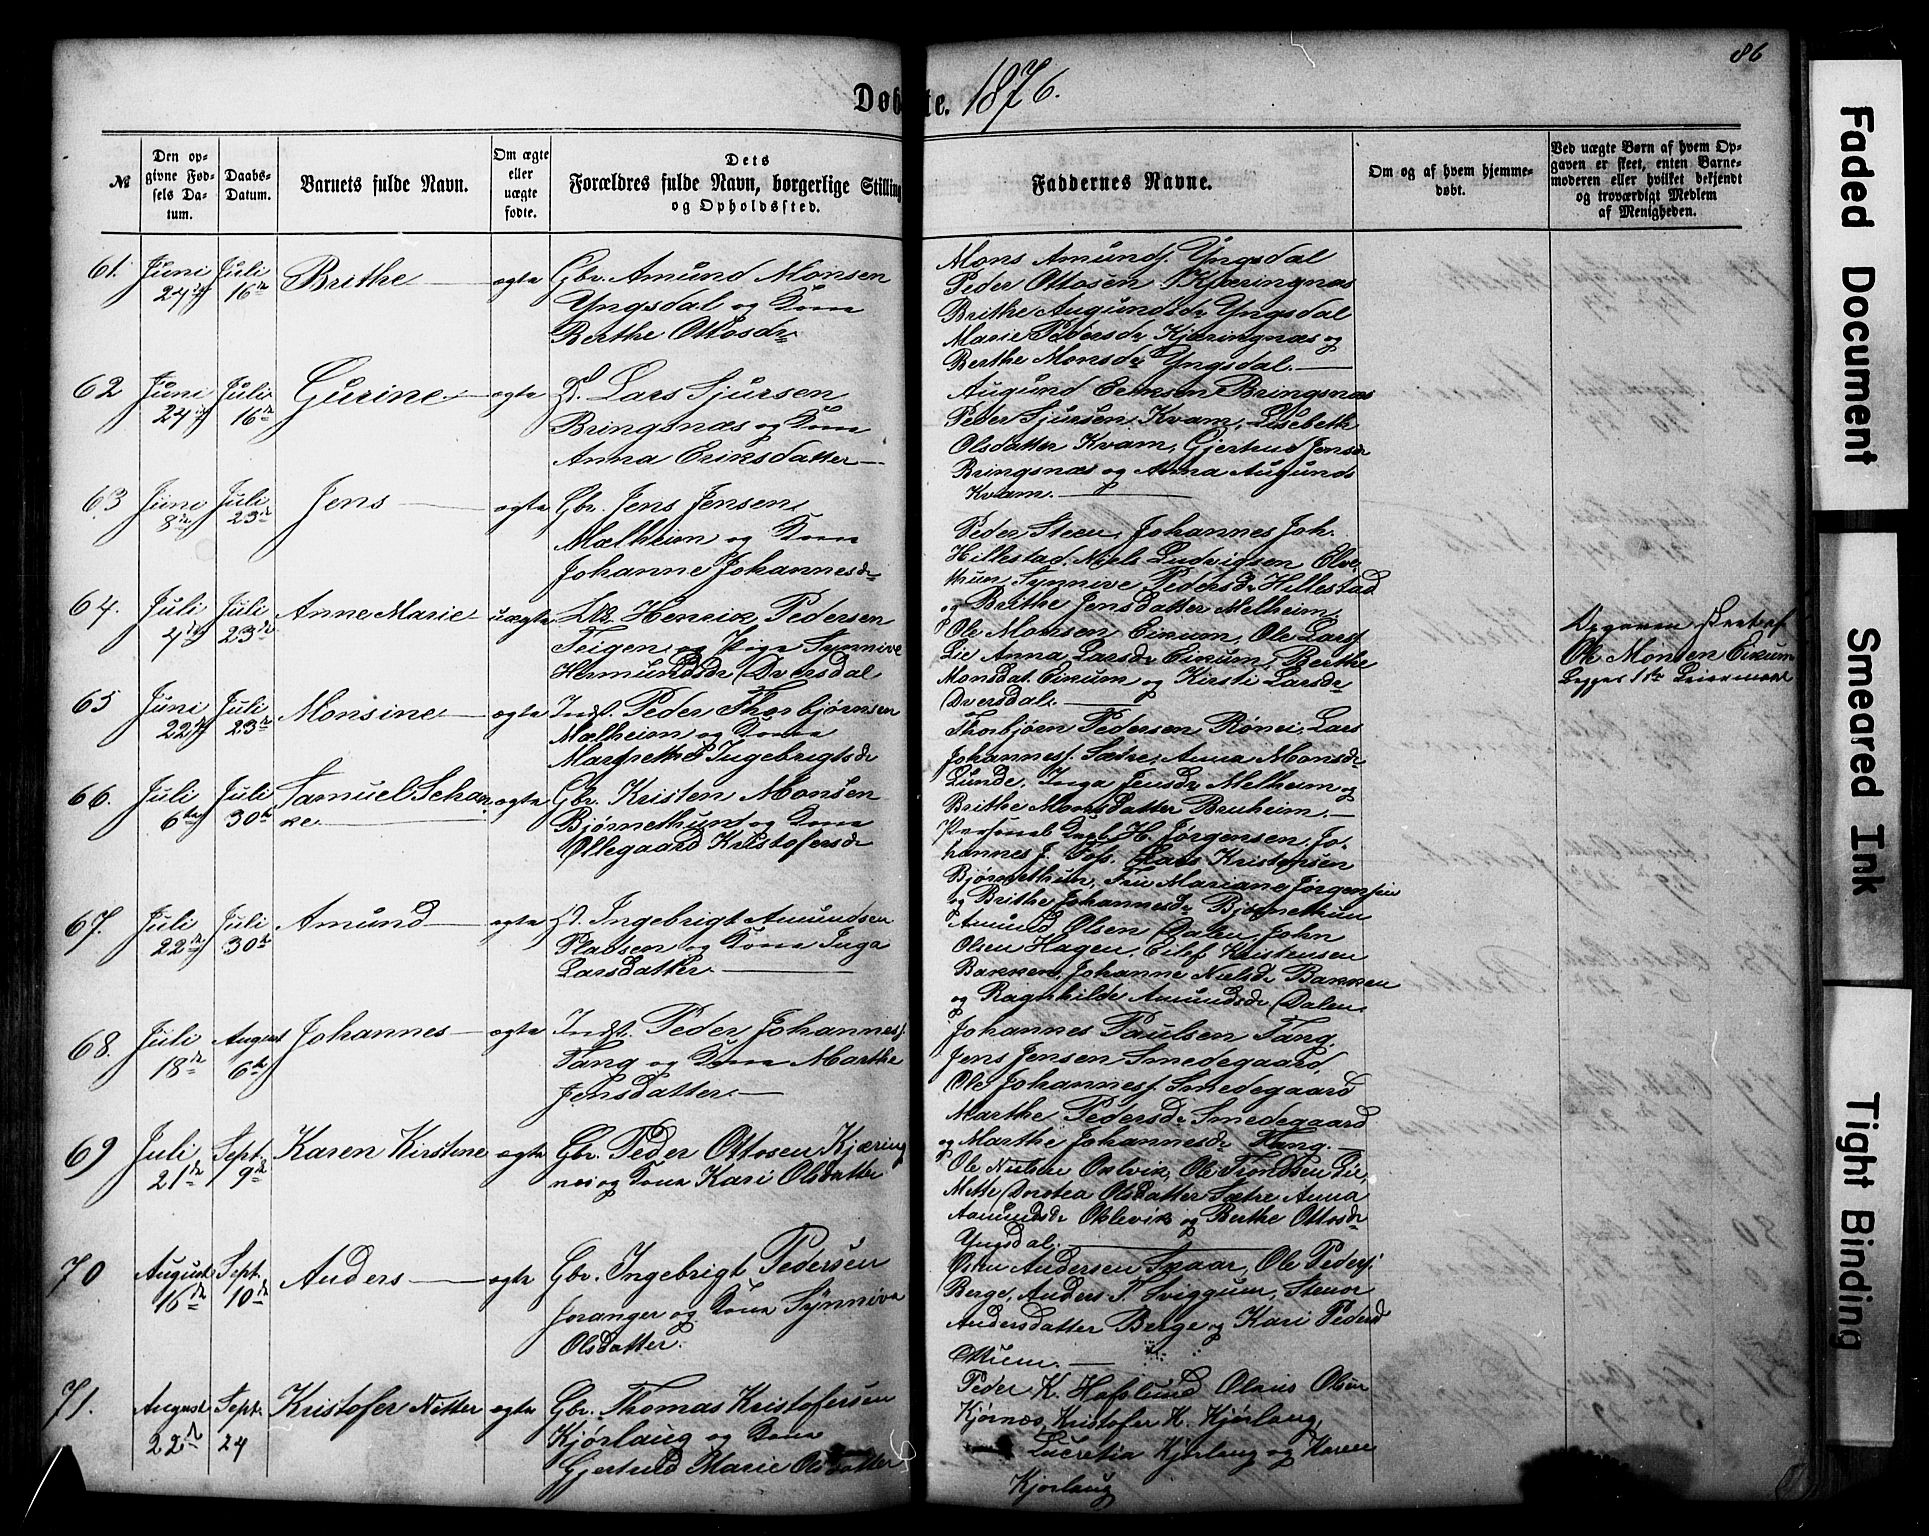 86
Døbte. 1876.
№
Den opgivne Fødsels Datum.
Daabs-Datum.
Barnets fulde Navn.
Om ægte eller uægte fødte.
Dets Forældres fulde Navn, borgerlige Stilling og Opholdssted.
Faddernes Navne.
Om og af hvem hjemmedøbt.
Ved uægte Børn af hvem Opgaven er skeet, enten Barnemoderen eller hvilket bekjendt og troværdigt Medlem af Menigheden.
61. Juni 24de Juli 16de Brithe ægte Gbr. Amund Monsen
Yngsdal og Kone
Berthe Ottosdr
Mons Amunds. Yngsdal
Peder Ottosen Kjæringnæs
Brithe Augundsdr Yngsdal
Marie Pedersdr Kjæringnæs og
Berthe Monsdr Yngsdal.
62 Juni 24de Juli 16de Gurine ægte Lars Sjursen
Bringsnæs og Kone
Anna Eriksdatter
Augund Eriksen Bringsnæs
Peder Sjursen Kvam, Lisebeth
Olsdatter Kvam, Gjertrud Jensdr
Bringsnæs og Anna Augunds
Kvam.
63 Juni 8de Juli 23de Jens ægte Gbr. Jens Jensen
Mælheim og Kone
Johanne Johannesdr
Peder Steen, Johannes Joh.
Hillestad, Niels Ludvigsen Elve
thun, Synnive Pedersdr Hillestad
og Brithe Jensdatter Melheim
64. Juli 4de Juli 23de Anne Marie uægte Henrik Pedersen
Teigen og Pige Synnive
Hermundsdr Dversdal
Ole Monsen Eikum, Ole Lars.
Lie Anna Larsdr Eikum, Berthe
Monsdat. Eikum og Kirsti Larsdr
Dversdal.
Opgaven skeet af
Ole Monsen Eikum
Begges 1ste Leiermaal
65 Juni 22de Juli 23de Monsine ægte Indst. Peder Thorbjørnsen
Mælheim og Kone
Margrethe Ingebrigtsdr
Thorbjørn Pedersen Rønei, Lars
Johannes. Sætre, Anna Monsdr
Lunde, Inga Jensdr Melheim og
Brithe Monsdatter Bruheim.
66. Juli 6te Juli 30te Samuel Schan
ke ægte Gbr. Kristen Monsen
Bjørnethun og Kone
Øllegaard Kristofersdr
Personel Capl. H. Jørgensen, Jo-
hannes J. Fos, Claus Kristensen
Bjørnethun, Fru Mariane Jørgensen
og Brithe Johannesdr Bjørnethun
67. Juli 22de Juli 30te Amund ægte Ingebrigt Amundsen
Pladsen og Kone Inga
Larsdatter.
Amund Olsen Dalen, John
Olsen Hagen, Eilef Kristensen
Bakken, Johanne Nielsdr Bakken
og Ragnhilde Amundsdr Dalen.
68. Juli 18de August 6te Johannes ægte Indst. Peder Johannes.
Tang og Kone Marthe
Jensdatter.
Johannes Paulsen Tang,
Jens Jensen Smedegaard,
Ole Johannes. Smedegaard
Marthe Pedersdr Smedegaard
og Marthe Johannesdr Tang.
69 Juli 21de Sept. 9de Karen Kirstine ægte Gbr. Peder Ottosen Kjæring
næs og Kone Kari Olsdatter
Ole Nielsen Oklevik, Ole Trondsen Lie,
Mette Dorotea Olsdatter Sætre Anna
Aamundsdr Oklevik og Berthe Ottosdr
Yngsdal.
70 August 16de Sept. 10de Anders ægte Gbr. Ingebrigt Pedersen
Joranger og Kone Synnive
Olsdatter.
Andersen Skaar, Ole Peders.
Berge, Anders T. Sviggum, Steinor
Andersdatter Berge og Kari Pedersd
71. August 22de Sept. 24 Kristofer Nitter ægte Gbr. Thomas Kristofersen
Kjørlaug og Kone
Gjertrud Marie Olsdatter
Peder K. Hafslund Olaus Olsen
Kjørnæs, Kristofer K. Kjørlaug,
Lucretia Kjørlaug og Karen
Kjørlaug
Faded Document
Smeared Ink
Tight Binding